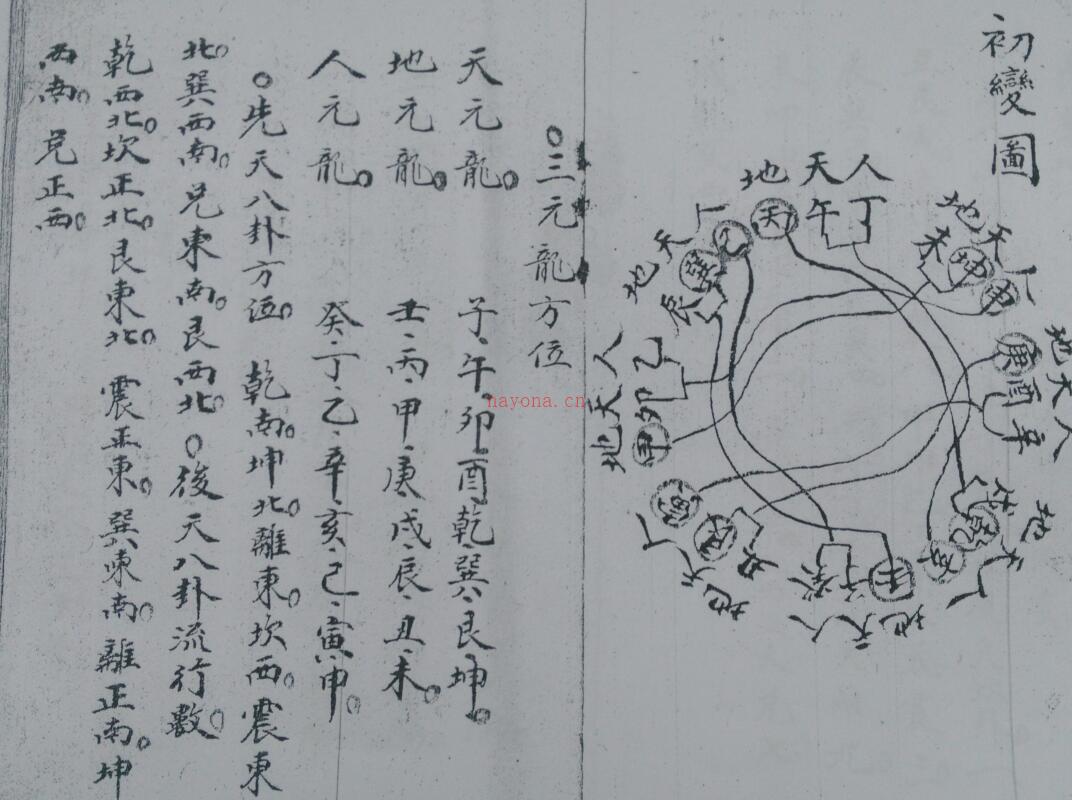 初變圖
地天人
天午丁
地天人
未坤申
地天人
庚酉辛
地天人
戌乾亥
地天人
壬子癸
地天人
丑艮寅
地天人
甲卯乙
地天人
辰巽巳
○三元龍方位
天元龍。子·午·卯·酉·乾·巽·艮·坤。
地元龍。壬·丙·甲·庚·戌·辰·丑·未。
人元龍。癸·丁·乙·辛·亥·巳·寅·申。
○先天八卦方位。乾南。坤北。離東。坎西。震東
北。巽西南。兌東南。艮西北。○後天八卦流行數。
乾西北。坎正北。艮東北。震正東。巽東南。離正南。坤
西南。兌正西。
nayona.cn